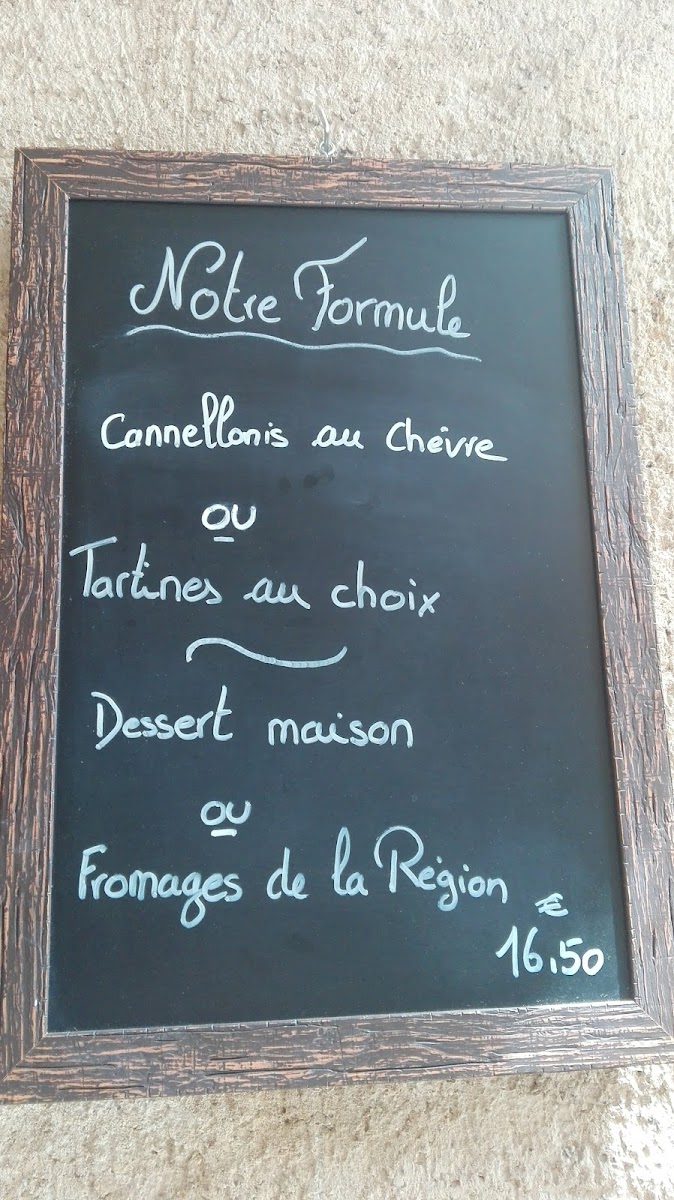 Notre Formule
Cannellonis au Chèvre
ou
Tartines au choix
Dessert maison
ou
Fromages de la Région
€
16.50